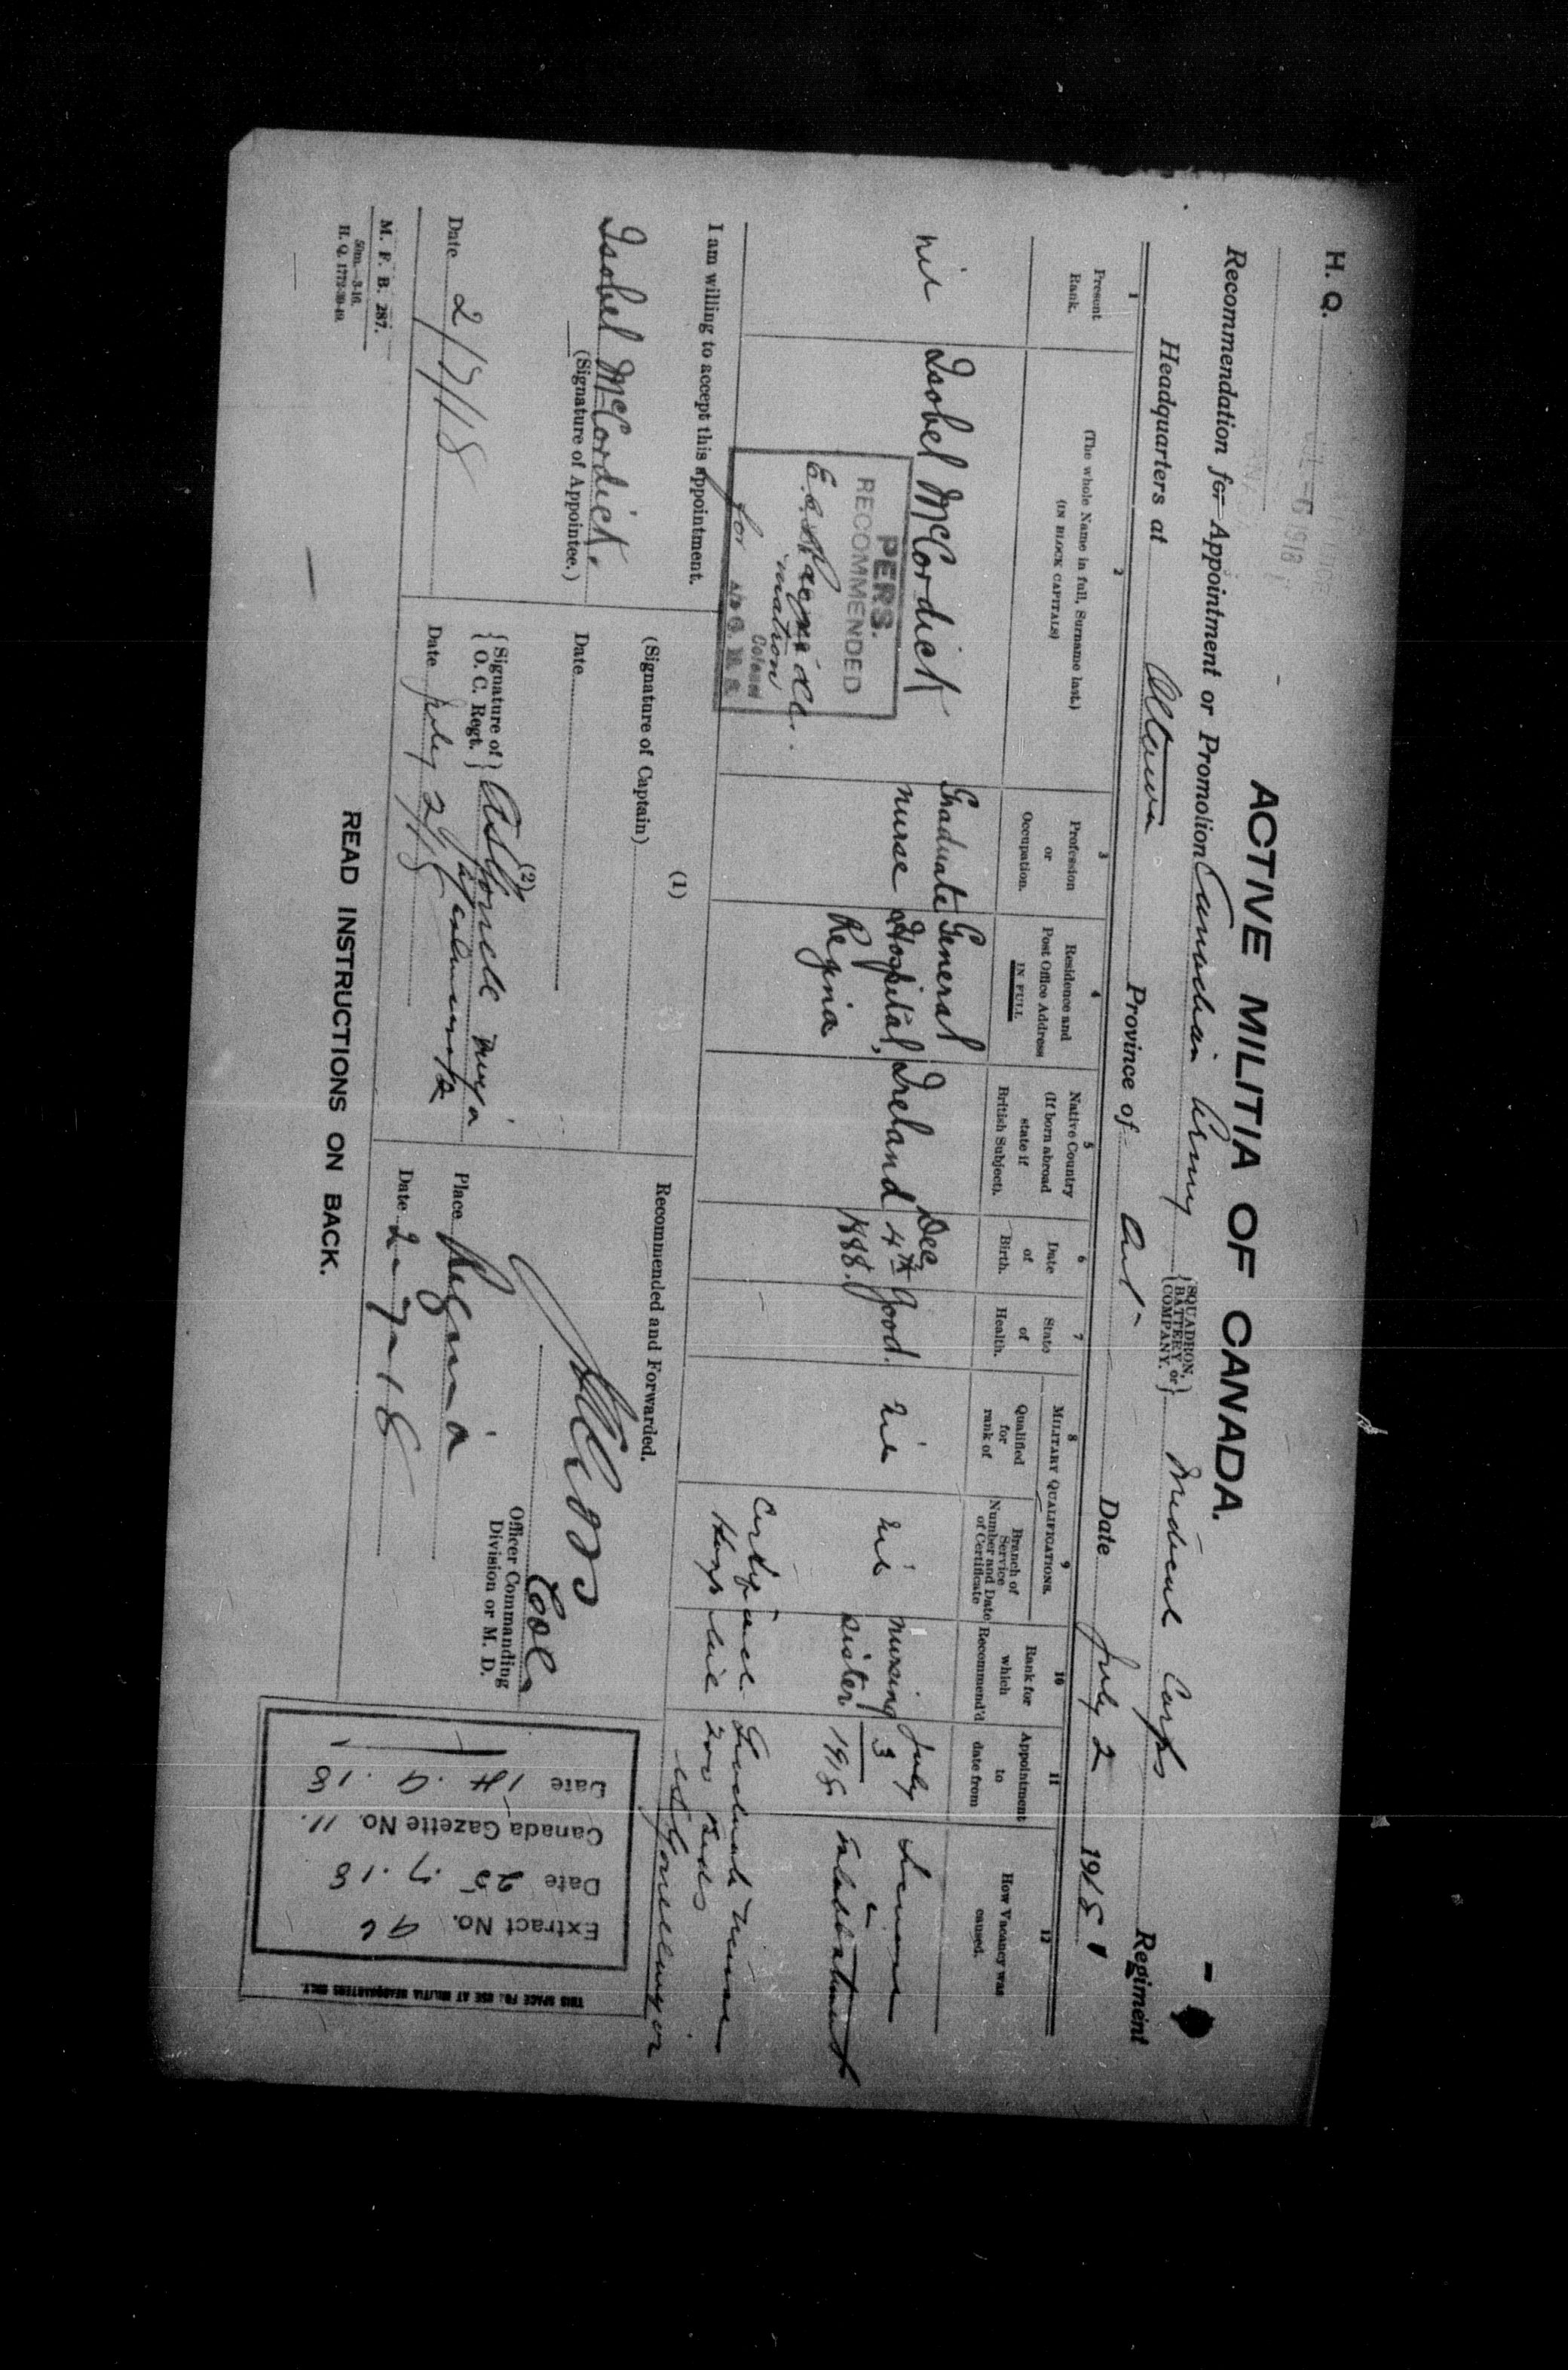 H. Q.
JUL -6 1918
ACTIVE MILITIA OF CANADA.
Recommendation for Appointment or Promotion Canadian Army {SQUADRON, BATTERY or COMPANY.} Medical Corps Regiment
Headquarters at Ottawa Province of Ont Date July 2 1918
1
Present Rank.
2
(The whole Name in full, Surname last.)
(IN BLOCK CAPITALS)
3
Profession or Occupation.
4
Residence and Post Office Address IN FULL
5
Native Country (If born abroad state if British Subject).
6
Date of Birth.
7
State of Health.
MILITARY QUALIFICATIONS.
8
Qualified for rank of
9
Branch of Service Number and Date of Certificate
10
Rank for which Recommend'd
11
Appointment to date from
12
How Vacancy was caused.
nil
Isobel McCordick
Graduate nurse
General Hospital, Regina
Ireland
Dec 4th 1888.
Good.
nil
nil
nursing sister
July 3 1918
Increase in establishment
PERS.
RECOMMENDED
matron
for
Colonel
Graduate Nurse
200 Beds
I am willing to accept this appointment.
Isobel McCordick.
(Signature of Appointee.)
Date 2/7/18
(1)
(Signature of Captain)
Date
(2)
{Signature of O. C. Regt.}
Date July 2/18
Recommended and Forwarded.
Col
Officer Commanding Division or M. D.
Place Regina
Date 2-7-18
Extract No. 96
Date 25.7.18
Canada Gazette No. 11.
Date 14.9.18
THIS SPACE FOR USE AT MILITIA HEADQUARTERS ONLY.
M. F. B. 287.
50m.—3-16.
H. Q. 1772-39-49.
READ INSTRUCTIONS ON BACK.